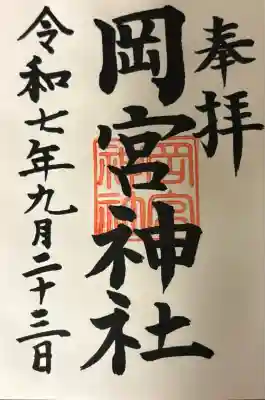 奉拝
岡宮神社
岡宮神社
令和七年九月二十三日